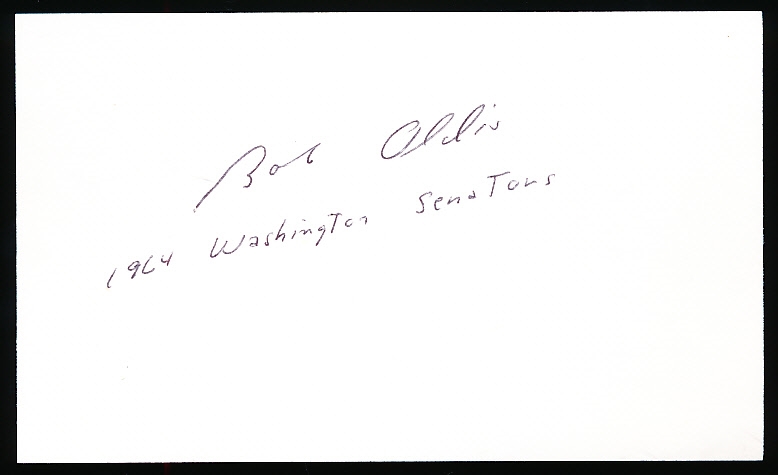 Bob Oldis
1964 Washington Senators